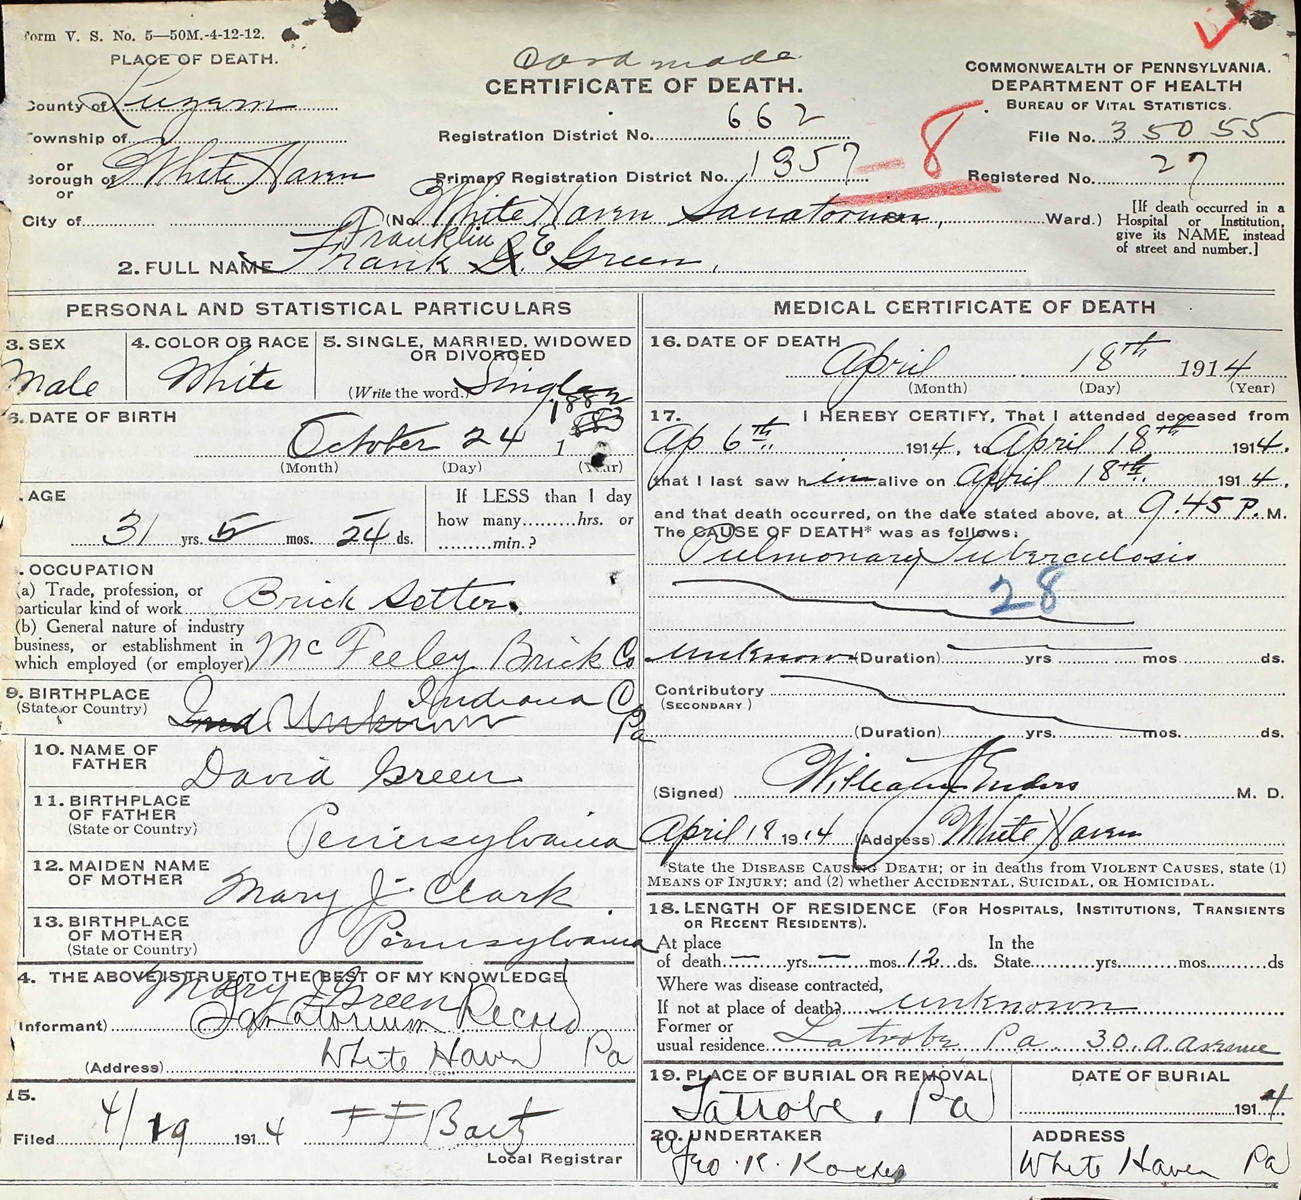 Form V. S. No. 5—50M.-4-12-12.
PLACE OF DEATH.
Card made
CERTIFICATE OF DEATH.
COMMONWEALTH OF PENNSYLVANIA.
DEPARTMENT OF HEALTH
BUREAU OF VITAL STATISTICS.
County of Luzern
Township of
or
Borough of White Haven
or
City of
Registration District No. 662
Primary Registration District No. 1357 - 8
File No. 35055
Registered No. 27
(No. White Haven Sanatorium, Ward.)
[If death occurred in a Hospital or Institution, give its NAME instead of street and number.]
Franklin E
2. FULL NAME Frank G. Green,
PERSONAL AND STATISTICAL PARTICULARS
3. SEX
Male
4. COLOR OR RACE
White
5. SINGLE, MARRIED, WIDOWED OR DIVORCED
(Write the word.) Single
6. DATE OF BIRTH
1882
October 24 1883
(Month) (Day) (Year)
. AGE
31 yrs. 5 mos. 24 ds.
If LESS than 1 day
how many........hrs. or
.........min.?
. OCCUPATION
(a) Trade, profession, or
particular kind of work Brick Setter.
(b) General nature of industry
business, or establishment in
which employed (or employer) McFeeley Brick Co
9. BIRTHPLACE
(State or Country) Ind Unknown Indiana Co Pa
10. NAME OF FATHER
David Green
11. BIRTHPLACE OF FATHER
(State or Country)
Pennsylvania
12. MAIDEN NAME OF MOTHER
Mary J. Clark
13. BIRTHPLACE OF MOTHER
(State or Country)
Pennsylvania
4. THE ABOVE IS TRUE TO THE BEST OF MY KNOWLEDGE
Mary J Green
Informant) Sanatorium Record
(Address) White Haven Pa
15.
Filed 4/19 1914 FF
Local Registrar
MEDICAL CERTIFICATE OF DEATH
16. DATE OF DEATH
April 18th 1914
(Month) (Day) (Year)
17. I HEREBY CERTIFY, That I attended deceased from
Ap 6th 1914, to April 18th 1914.
that I last saw him alive on April 18th. 1914.
and that death occurred, on the date stated above, at 9.45 P. M.
The CAUSE OF DEATH* was as follows:
Pulmonary Tuberculosis
28
unknown (Duration) yrs mos. ds.
Contributory
(SECONDARY)
(Duration) yrs. mos. ds.
(Signed) William M. D.
April 18 1914 (Address) White Haven
*State the DISEASE CAUSING DEATH; or in deaths from VIOLENT CAUSES, state (1)
MEANS OF INJURY; and (2) whether ACCIDENTAL, SUICIDAL, OR HOMICIDAL.
18. LENGTH OF RESIDENCE (FOR HOSPITALS, INSTITUTIONS, TRANSIENTS
OR RECENT RESIDENTS).
At place of death — yrs. — mos. 12 ds. In the State yrs. mos. ds
Where was disease contracted,
If not at place of death? unknown
Former or
usual residence Latrobe, Pa. 30. A. Avenue
19. PLACE OF BURIAL OR REMOVAL
Latrobe, Pa
DATE OF BURIAL
1914
20. UNDERTAKER
Geo. K.
ADDRESS
White Haven Pa